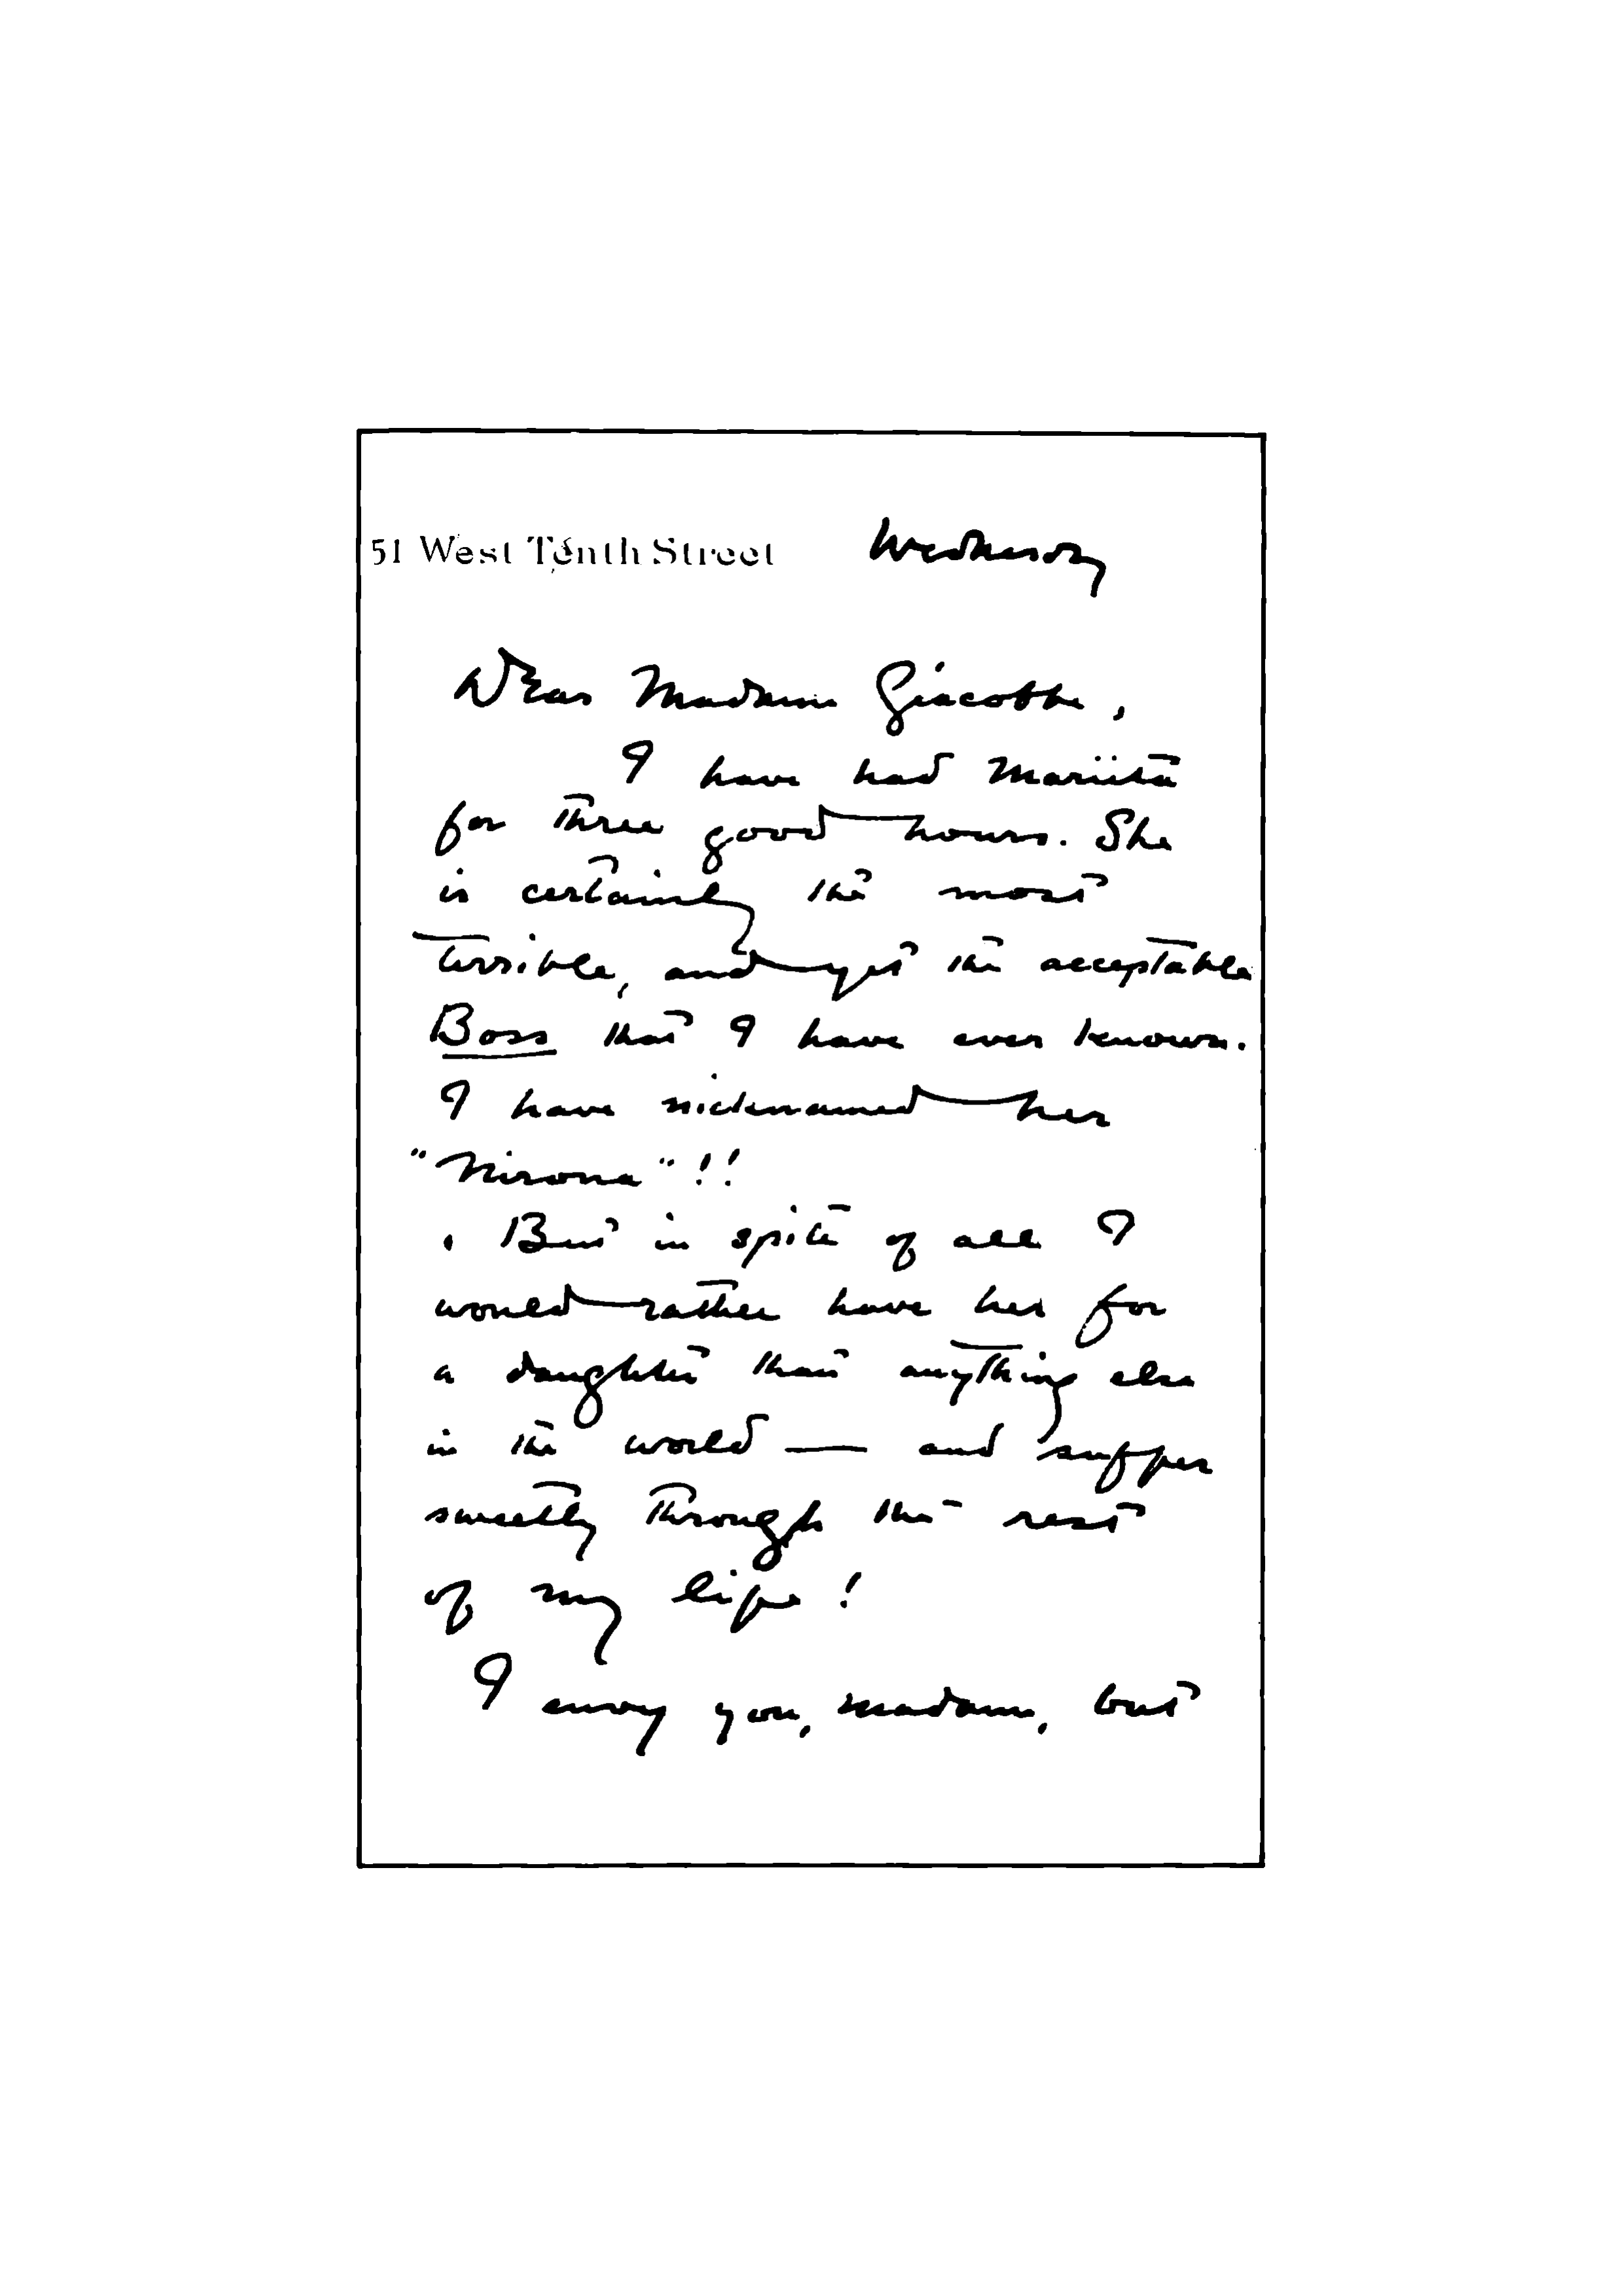 51 West Tenth Street Wednesday
Dear Madam Giacobbe,
I have had Mariita
for three good hours. She
is certainly the most
terrible, and yet the acceptable
Boss that I have ever known.
I have nicknamed her
"Nirona"!!
But in spite of all I
would rather have her for
a daughter than anything else
in the world — and suffer
sweetly through the rest
of my life!
I envy you, madam, but